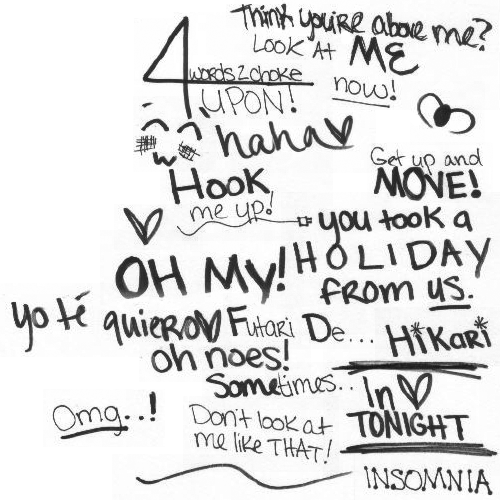 Think you're above me?
LOOK At ME
now!
4 words 2 choke
UPON!
haha
Get up and
MOVE!
Hook
me up!
you took a
HOLIDAY
from us.
OH MY!
yo té quiero
Futari De...
Hikari
oh noes!
Sometimes..
In
TONIGHT
Omg..!
Don't look at
me like THAT!
INSOMNIA